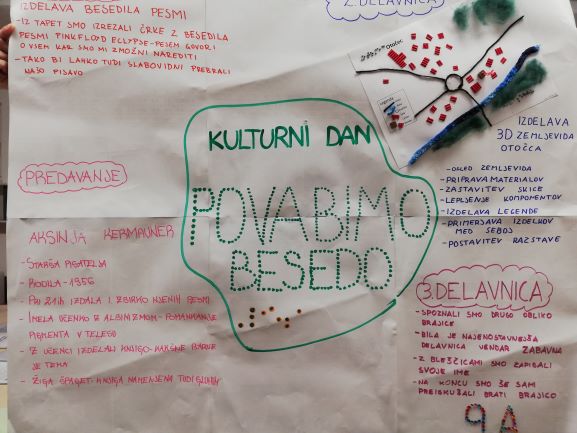 IZDELAVA BESEDILA PESMI
-IZ TAPET SMO IZREZALI ČRKE Z BESEDILA
PESMI PINK FLOYD ECLYPSE-PESEM GOVORI
O VSEM KAR SMO MI ZMOŽNI NAREDITI
-TAKO BI LAHKO TUDI SLABOVIDNI PREBRALI
NAŠO PISAVO
2. DELAVNICA
OTOČEC
Legenda
IZDELAVA
3D ZEMLJEVIDA
OTOČCA
-OGLED ZEMLJEVIDA
-PRIPRAVA MATERIALOV
-ZASTAVITEV SKICE
-LEPLJENJE KOMPONENTOV
-IZDELAVA LEGENDE
-PRIMERJAVA IZDELKOV
MED SEBOJ
-POSTAVITEV RAZSTAVE
KULTURNI DAN
POVABIMO
BESEDO
PREDAVANJE
AKSINJA KERMAUNER
-STAREJŠA PISATELJA
-RODILA-1956
-PRI 21ih IZDALA 1. ZBIRKO NJENIH PESMI
-IMELA UČENKO Z ALBINIZMOM-POMANJKANJE
PIGMENTA V TELESU
-Z UČENCI IZDELALI KNJIGO-KAKŠNE BARVE
JE TEMA
-ŽIGA ŠPAGET-KNJIGA NAMENJENA TUDI GLUHIM
3. DELAVNICA
-SPOZNALI SMO DRUGO OBLIKO
BRAJICE
-BILA JE NAJENOSTAVNEJŠA
DELAVNICA VENDAR ZABAVNA
-Z BLEŠČICAMI SMO ZAPISALI
SVOJE IME
-NA KONCU SMO ŠE SAMI
PREIZKUŠALI BRATI BRAJICO
9A